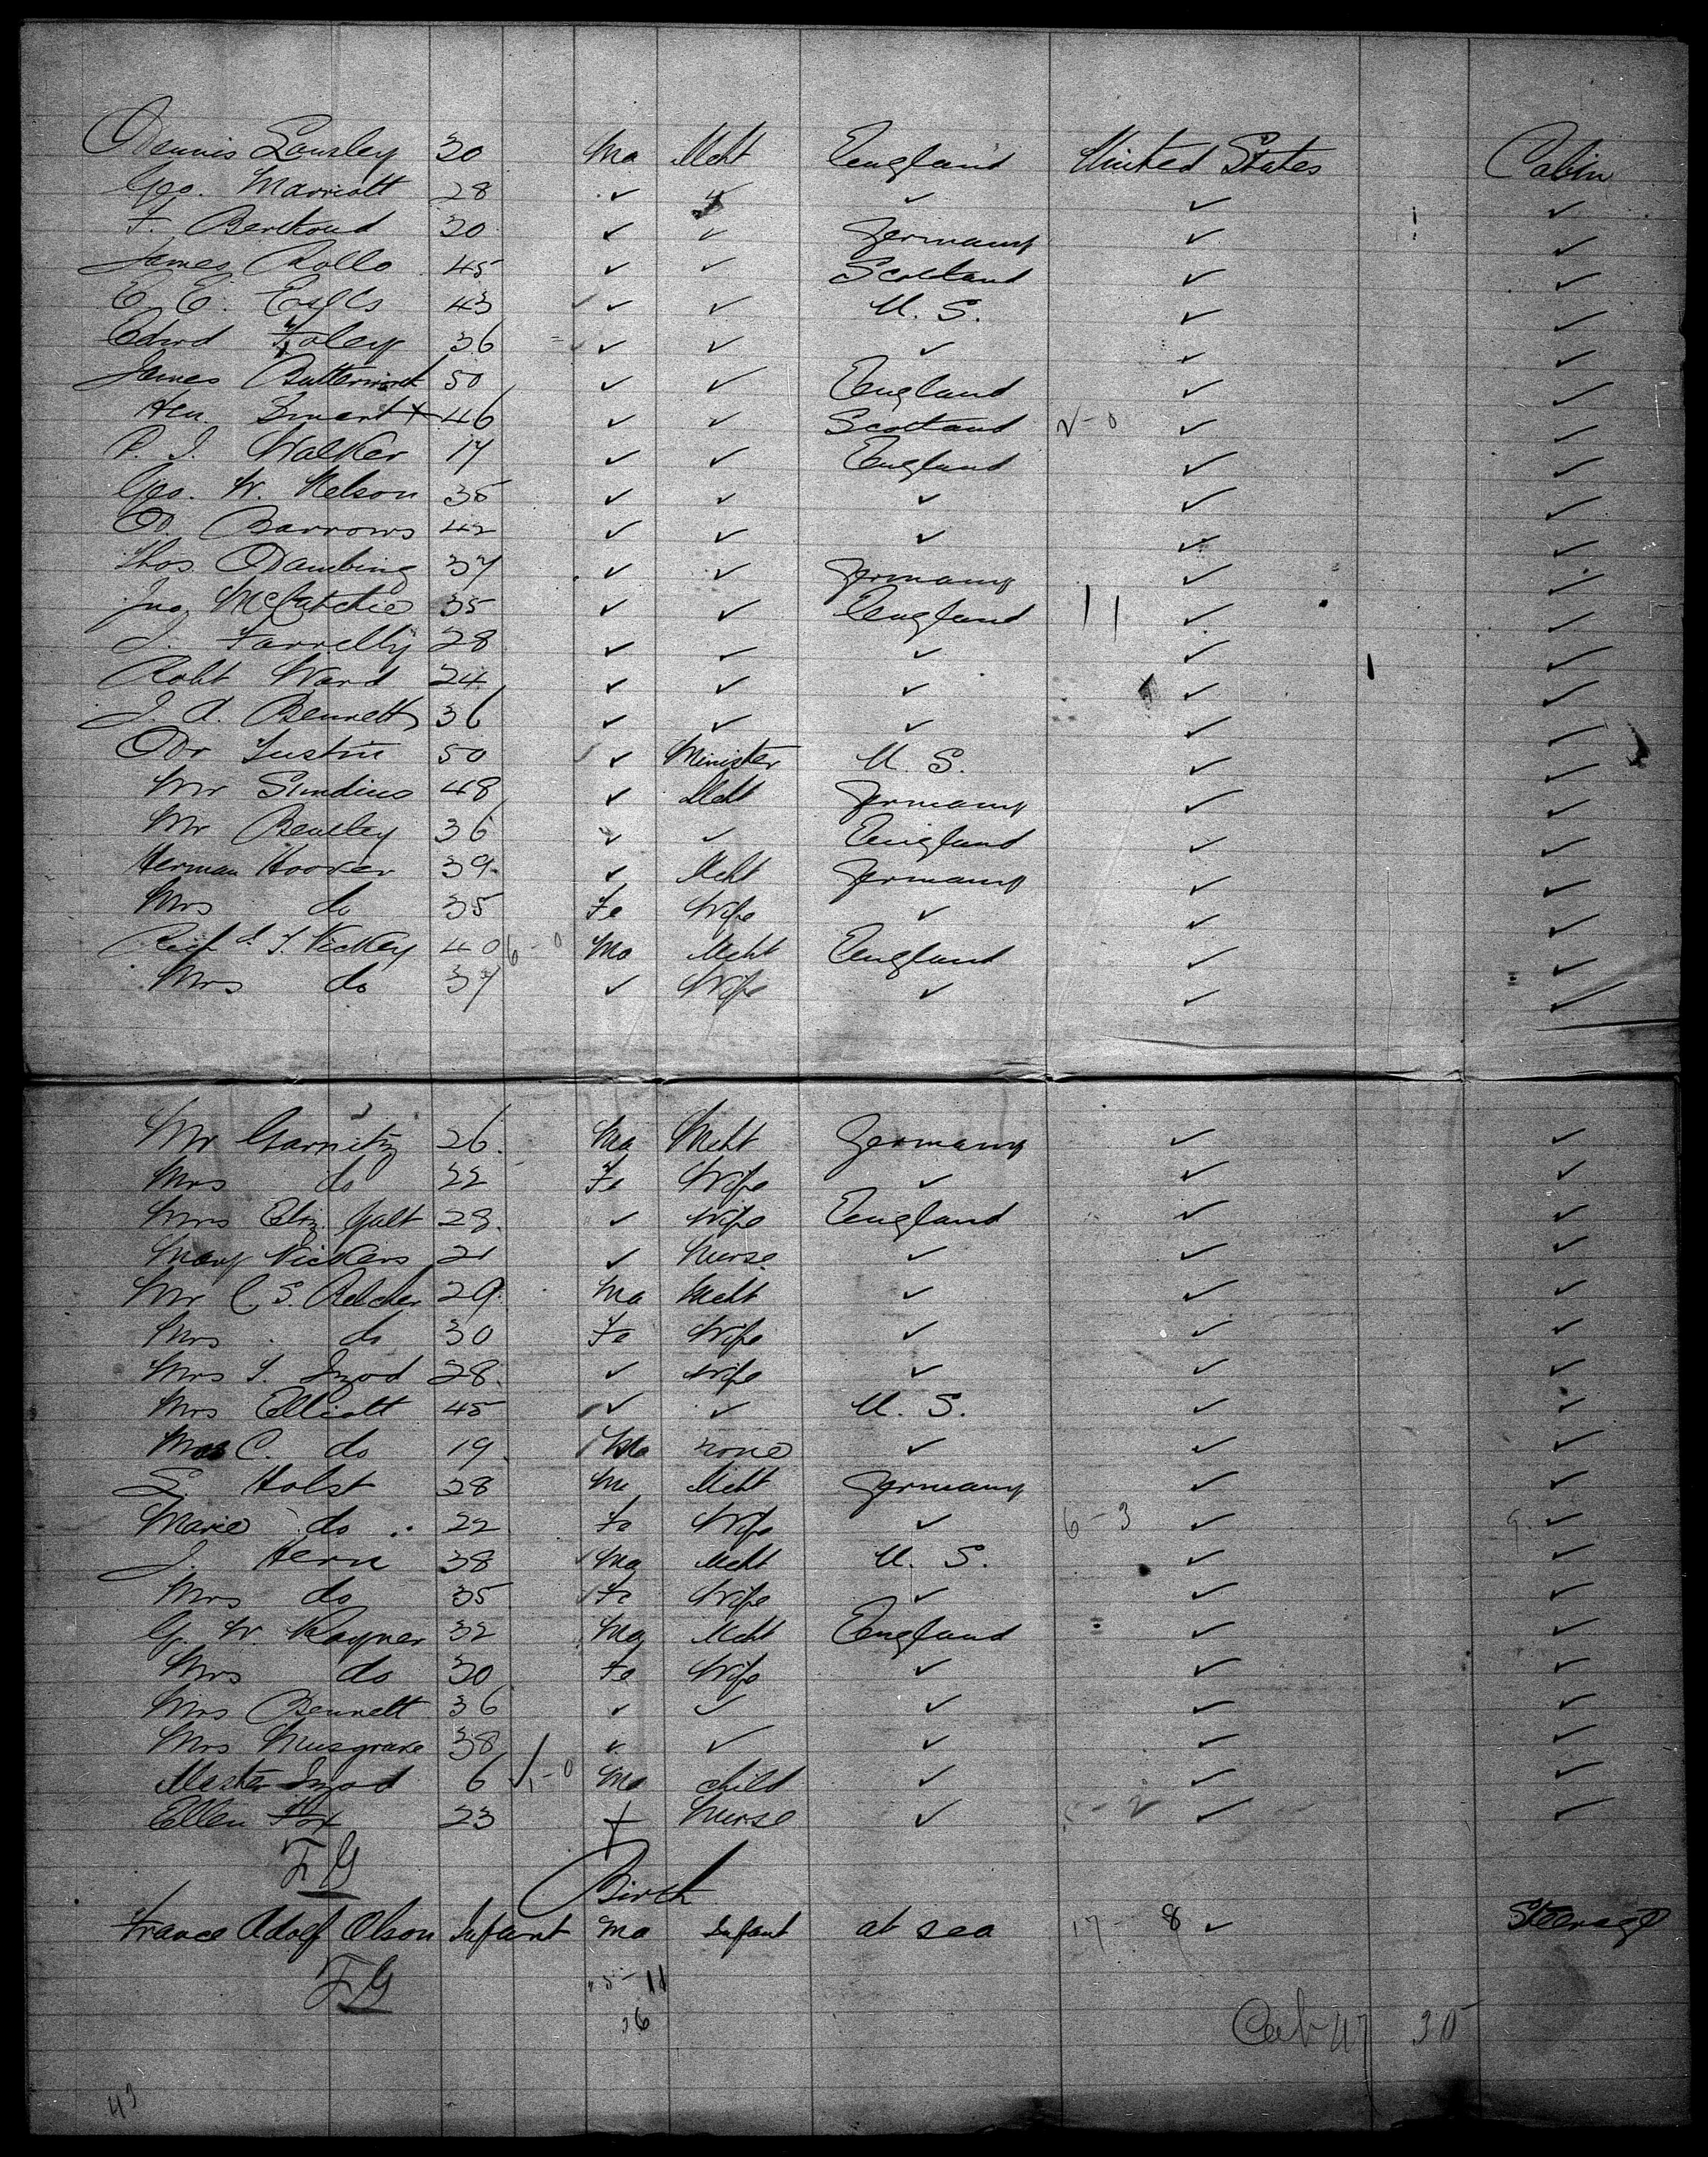 Dennis Lousley 30 Ma Mcht England United States Cabin
Geo. Marriott 28 ✓ ✓ ✓ ✓ ✓
F. Berthoud 30 ✓ ✓ Germany ✓ ✓
James Rollo 45 ✓ ✓ Scotland ✓ ✓
43 ✓ ✓ U. S. ✓ ✓
Edwd Foley 36 ✓ ✓ ✓ ✓ ✓
James Butterworth 50 ✓ ✓ England ✓ ✓
Hen. Smart + 46 ✓ ✓ Scotland 2-0 ✓ ✓
P. J. Walker 17 ✓ ✓ England ✓ ✓
Geo. W. Nelson 35 ✓ ✓ ✓ ✓ ✓
D. Barrows 42 ✓ ✓ ✓ ✓ ✓
Thos. Dambing 37 ✓ ✓ Germany ✓ ✓
Jno. McCatchie 35 ✓ ✓ England 11 ✓ ✓
J. Farrelly 28 ✓ ✓ ✓ ✓ ✓
Robt Ward 24 ✓ ✓ ✓ ✓ ✓
J. A. Bennett 36 ✓ ✓ ✓ ✓ ✓
Dr Tustin 50 ✓ Minister U. S. ✓ ✓
Mr 48 ✓ Mcht Germany ✓ ✓
Mr Bentley 36 ✓ ✓ England ✓ ✓
Herman Hoover 39 ✓ Mcht Germany ✓ ✓
Mrs do 35 Fe Wife ✓ ✓ ✓
Richd T. Vickey 40 6-0 Ma Mcht England ✓ ✓
Mrs do 37 ✓ Wife ✓ ✓ ✓
Mr Garnitz 26 Ma Mcht Germany ✓ ✓
Mrs do 22 Fe Wife ✓ ✓ ✓
Mrs Eliz. Galt 28 ✓ Wife England ✓ ✓
Mary Vickers 21 ✓ Nurse ✓ ✓ ✓
Mr C. S. Belcher 29 Ma Mcht ✓ ✓ ✓
Mrs do 30 Fe Wife ✓ ✓ ✓
Mrs T. Izod 28 ✓ wife ✓ ✓ ✓
Mrs Elliott 45 ✓ ✓ U. S. ✓ ✓
C. do 19 Ma none ✓ ✓ ✓
S. Holst 28 Ma Mcht Germany ✓ ✓
Marie do 22 Fe Wife ✓ 6-3 ✓ ✓
J. Hern 38 Ma Mcht U. S. ✓ ✓
Mrs do 35 Fe Wife ✓ ✓ ✓
G. W. Rayner 32 Ma Mcht England ✓ ✓
Mrs do 30 Fe Wife ✓ ✓ ✓
Mrs Bennett 36 ✓ ✓ ✓ ✓ ✓
Mrs Musgrave 38 ✓ ✓ ✓ ✓ ✓
Master Izod 6 1-0 Ma child ✓ ✓ ✓
Ellen Fox 23 + Nurse ✓ ✓ ✓
FG
Birth
France Adolf Olson Infant Ma Infant at sea 17-8 ✓ Steerage
FG
Cab 47
43